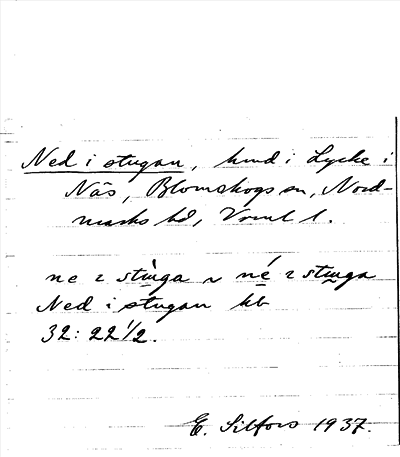 Ned i stugan, hmd i Lycke i
Näs, Blomskogs sn, Nord-
marks hd, Vrml l.
ne ɩ stùga ~ né ɩ stuga
Ned i stugan kb
32: 22 1/2.
E. Silfors 1937.